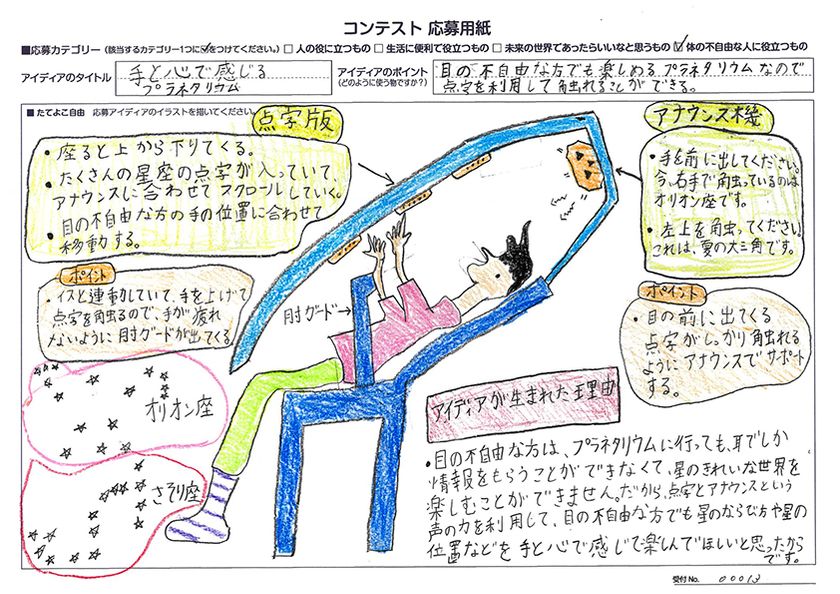 コンテスト 応募用紙
■応募カテゴリー(該当するカテゴリー1つに✓をつけてください。) □ 人の役に立つもの □ 生活に便利で役立つもの □ 未来の世界であったらいいなと思うもの ☑ 体の不自由な人に役立つもの
アイディアのタイトル
手と心で感じる
プラネタリウム
アイディアのポイント
(どのように使う物ですか?)
目の不自由な方でも楽しめるプラネタリウムなので
点字を利用して触れることができる。
■ たてよこ自由 応募アイディアのイラストを描いてください。
点字版
・座ると上から下りてくる。
・たくさんの星座の点字が入っていて、
アナウンスに合わせてスクロールしていく。
・目の不自由な方の手の位置に合わせて
移動する。
アナウンス機
・手を前に出してください。
今、右手で触っているのは
オリオン座です。
・左上を触ってください。
これは、夏の大三角です。
ポイント
・イスと連動していて、手を上げて
点字を触るので、手が疲れ
ないように肘ガードが出てくる
肘ガード→
ポイント
・目の前に出てくる
点字がしっかり触れる
ようにアナウンスでサポート
する。
オリオン座
さそり座
アイディアが生まれた理由
・目の不自由な方は、プラネタリウムに行っても、耳でしか
情報をもらうことができなくて、星のきれいな世界を
楽しむことができません。だから、点字とアナウンスという
声の力を利用して、目の不自由な方でも星のならび方や星の
位置などを手と心で感じて楽しんでほしいと思ったから
です。
受付No. 00013